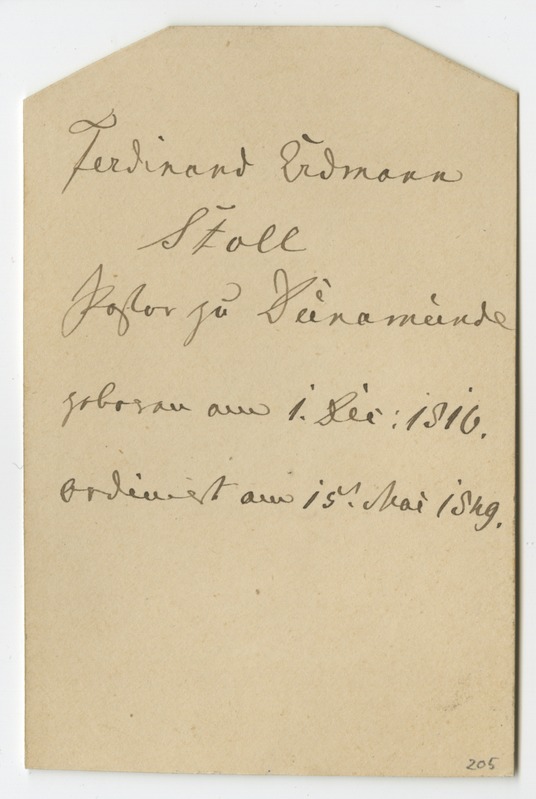 Ferdinand Erdmann
Stoll
Pastor zu Dünamünde
geboren am 1. Dec: 1816.
ordiniert am 15t. Mai 1849.
205